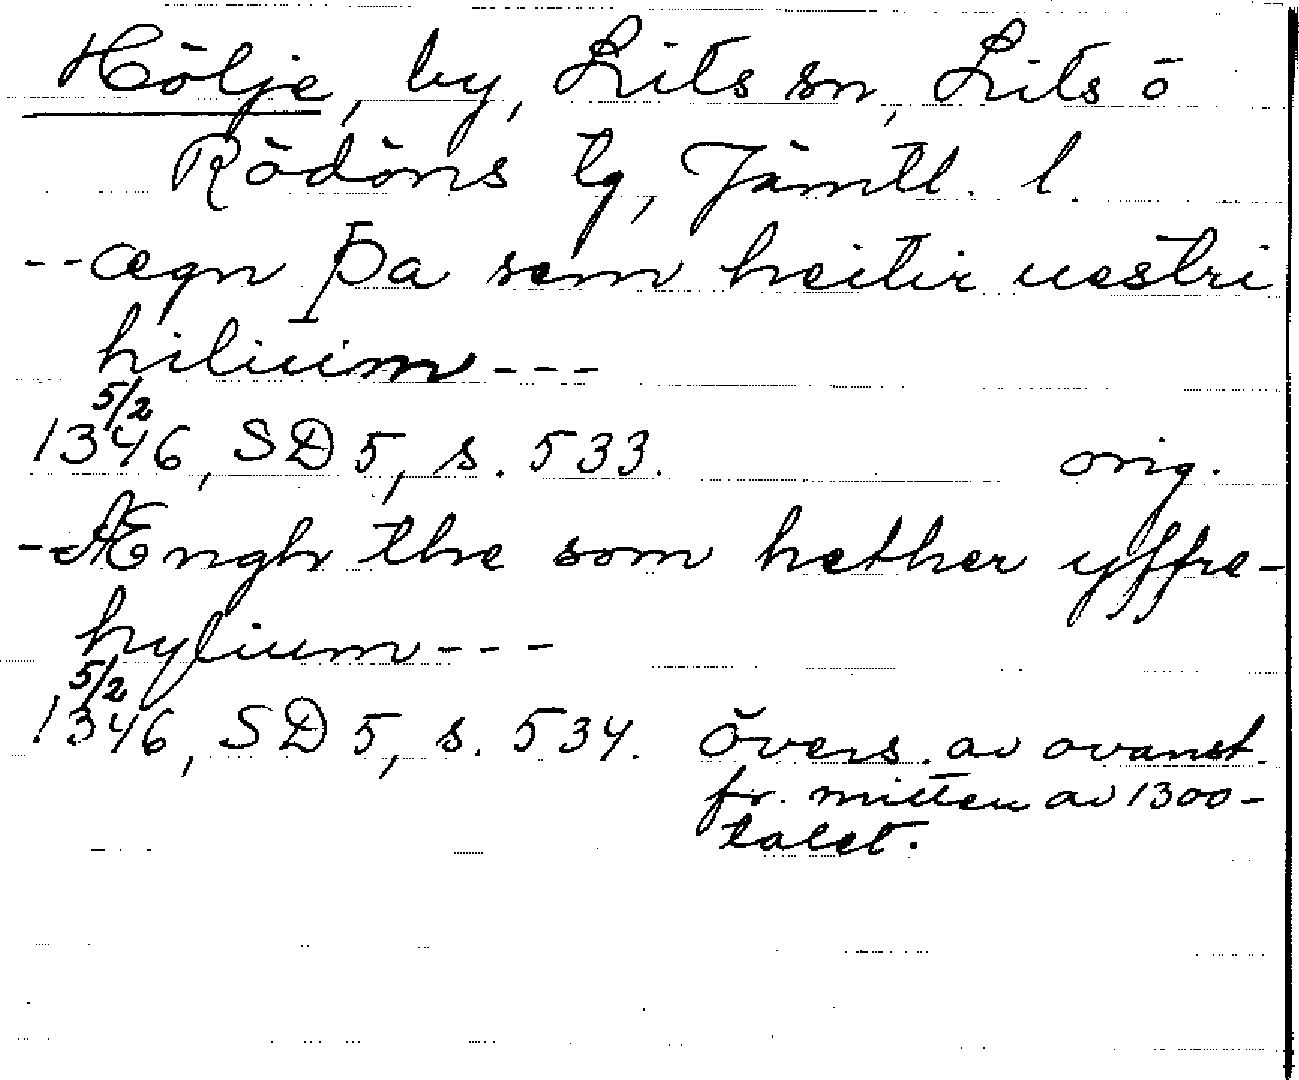 Hölje, by, Lits sn, Lits ö
Rödöns tg, Jämtl. l.
--ægn þa sem heitir uestri
hilium---
5/2
1346, SD 5, s. 533. orig.
-Ængh the som hether yffre-
hylium---
5/2
1346, SD 5, s. 534. Övers. av ovanst.
fr. mitten av 1300-
talet.